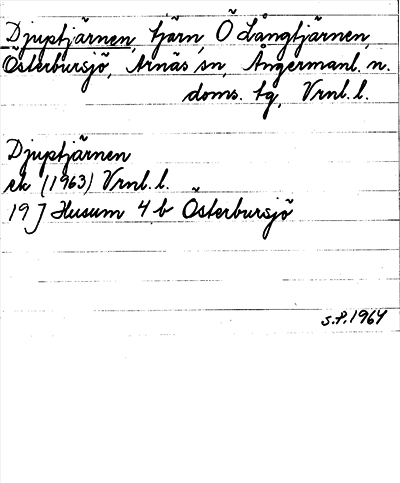 Djuptjärnen, tjärn, Ö Långtjärnen,
Österbursjö, Arnäs sn, Ångermanl. n.
doms. tg, Vrnl. l.
Djuptjärnen
ek (1963) Vrnl. l.
19 J Husum 4 b Österbursjö
S.P. 1964